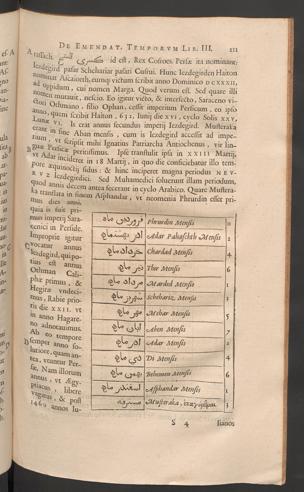 DE EMENDAT. TEMPORVM LIB. III.
211
id est, Rex Cosroes Persæ ita nominant.
Iezdegird pasar Scheheriar pasari Cusrui. Hunc Iezdegirden Haiton
nominat eumque victum scribit anno Domini DCXXXII,
ad oppidum, cui nomen Marga. Quod verum est. Sed quare illi
nomen mutauit, nescio. Eo igitur victo, & interfecto, Saraceno vi-
ctori Othmano, filio Ophan, cessit imperium Persicum, eo ipso
anno, quem scribit Haiton, 632, Iunij die XVI, cyclo Solis XXV,
Lunæ VI. Is erat annus secundus imperij Iezdegird. Musteraka
erant in fine Aban mensis, cum is Iezdegird accessit ad impe-
rium, vt scripsit mihi Ignatius Patriarcha Antiochenus, vir lin-
guæ Persicæ peritissimus. Ipse transtulit ipsa in XXIII Martij,
vt Adar incideret in 18 Martij, in quo die conficiebatur illo tem-
pore æquinoctij sidus: & hinc incipere magna periodus NEV-
RVZ Iezdegirdici. Sed Muhammedici soluerunt illam periodum,
quod annis decem antea fecerant in cyclo Arabico. Quare Mustera-
ka translata in finem Asphandar, vt neomenia Phrurdin esset pri-
mus dies anni
quia is fuit pri-
mus imperij Sara-
cenici in Perside.
Improprie igitur
vocatur annus
Iezdegird, quipo-
tius est annus
Othman Cali-
phæ primus, &
Hegiræ vndeci-
mus, Rabie prio-
ris die XXII. vt
in anno Hagare-
no adnotauimus.
Ab eo tempore
semper anno so-
lutiore, quam an-
tea, vtuntur Per-
sæ. Nam illorum
annus, vt Ægy-
ptiacus, libere
vagatur, & post
1460 annos Iu-
فروردين ماه Phrurdin Mensis
Adar Pahaschth Mensis
خرداد ماه Chardad Mensis
تير ماه Thir Mensis
مرداد ماه Mardad Mensis
شهرير ماه Schehariz Mensis
مهر ماه Mehar Mensis
ابان ماه Aben Mensis
ادر ماه Adar Mensis
دي ماه Di Mensis
بهمن ماه Behemen Mensis
اسفندر ماه Asphandar Mensis
مسترقه Musteraka,
S 4
lianos